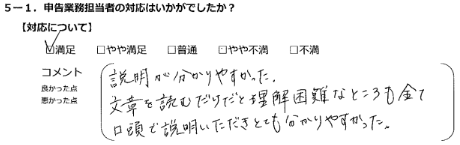 5－1．申告業務担当者の対応はいかがでしたか？
【対応について】
☑満足　□やや満足　□普通　□やや不満　□不満
コメント
良かった点
悪かった点
説明が分かりやすかった。
文章を読むだけだと理解困難なところも全て
口頭で説明いただきとても分かりやすかった。